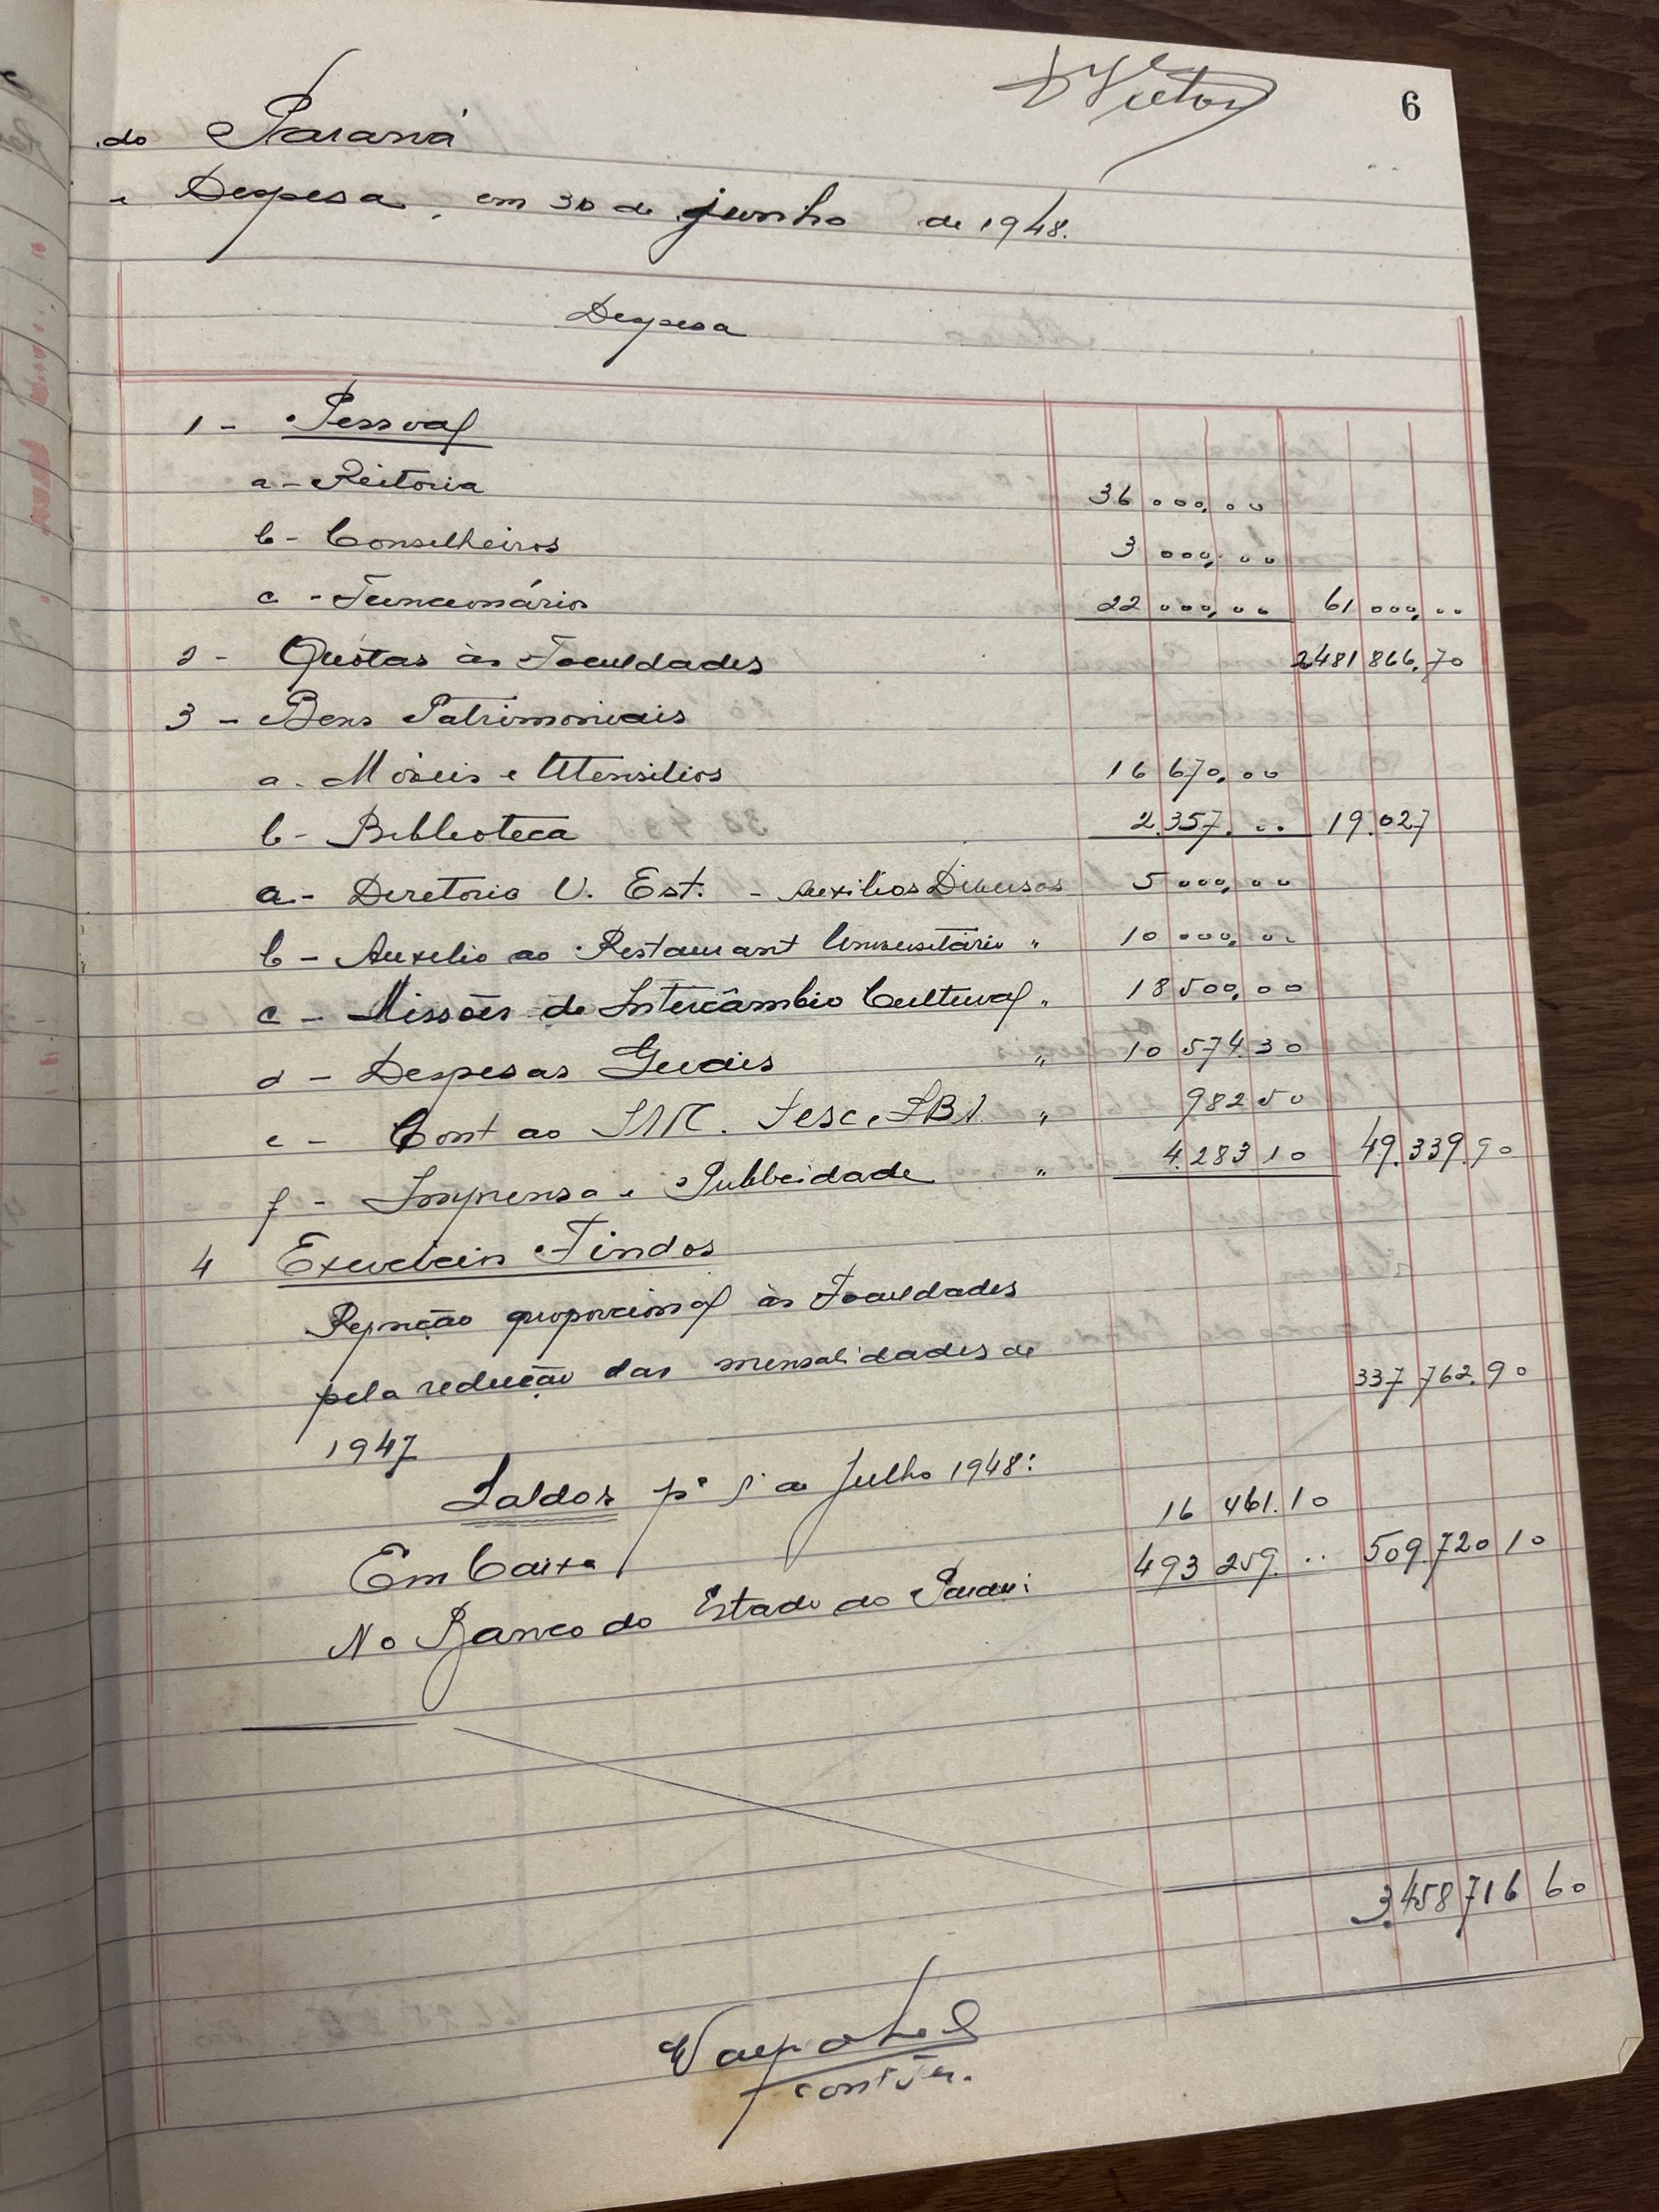 6
do Paraná
e Despesa, em 30 de junho de 1948.
Despesa
1 - Pessoal
a - Reitoria 36 000,00
b - Conselheiros 3 000,00
c - Funcionários 22 000,00 61 000,00
2 - Quotas às Faculdades 2481 866,70
3 - Bens Patrimoniais
a - Móveis e Utensilios 16 670,00
b - Biblioteca 2.357, .. 19.027
a - Diretorio U. Est. - Auxilios Diversos 5 000,00
b - Auxilio ao Restaurant Universitário " 10 000,00
c - Missões de Intercâmbio Cultural " 18 500,00
d - Despesas Gerais " 10 574.30
e - Cont ao Sesc, LBA. " 982 50
f - Imprensa e Publicidade " 4.283 10 49.339.90
4 Exercicios Findos
proporcional às Faculdades
pela redução das mensalidades de 337 762.90
1947
Saldos pª 1º de Julho 1948:
Em Caixa 16 461.10
No Banco do Estado do Paraná 493 259. .. 509.720 10
3.458 716 60